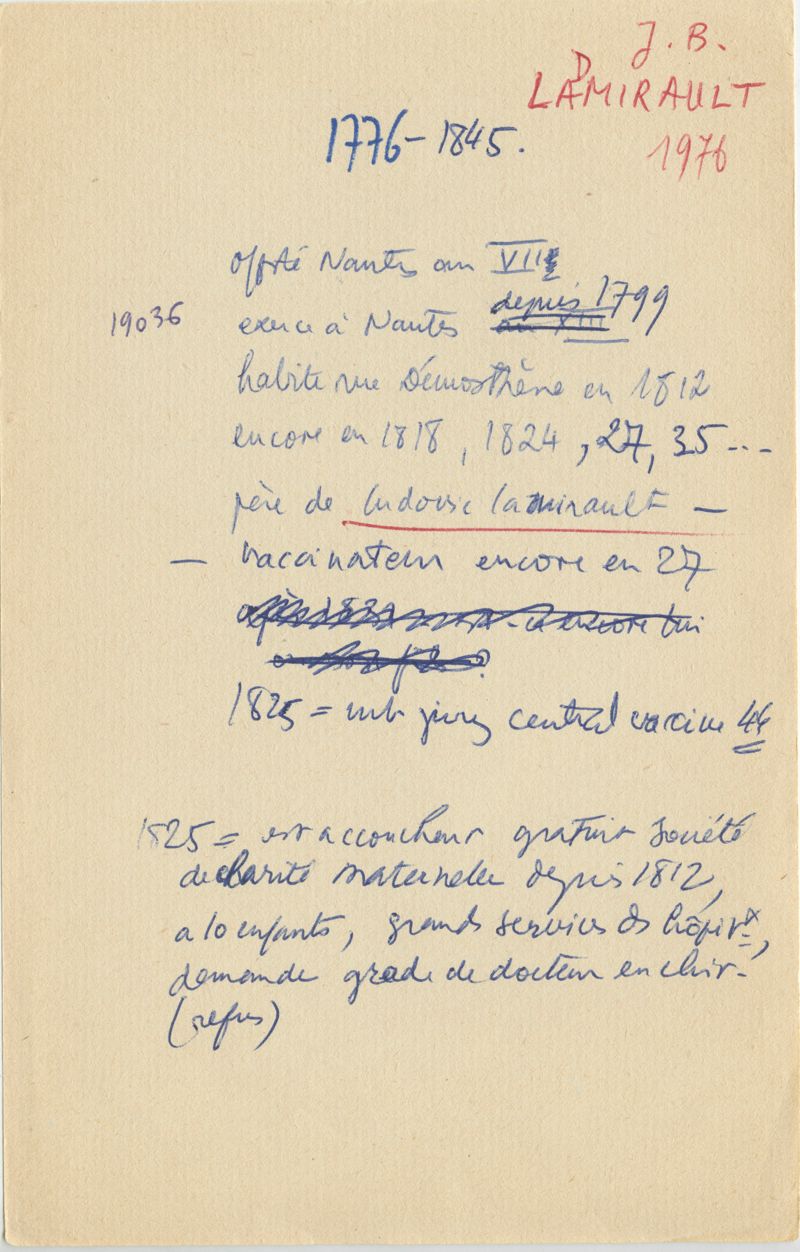 J. B.
D
LAMIRAULT
1976
1776-1845.
Nantes an VII
19036 exerce à Nantes depuis 1799
an XIII
habite rue Démosthène en 1812
encore en 1818, 1824, 27, 35...
père de Ludovic Lamirault —
— vaccinateur encore en 27
encore lui
1825 = mb jury central vaccine 44
1825 = est accoucheur gratuit Société
de charité maternelle depuis 1812,
a 10 enfants, grands services ds hôpit^x,
demande grade de docteur en chir.
(refus)